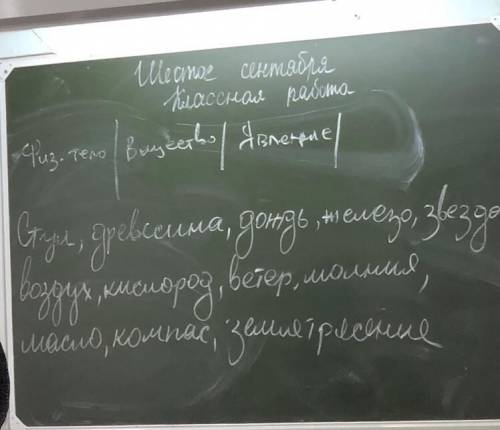 Шестое сентября
Классная работа
Физ. тело | Вещество | Явление |
Стул, древесина, дождь, железо, звезда
воздух, кислород, ветер, молния,
масло, компас, землетрясение